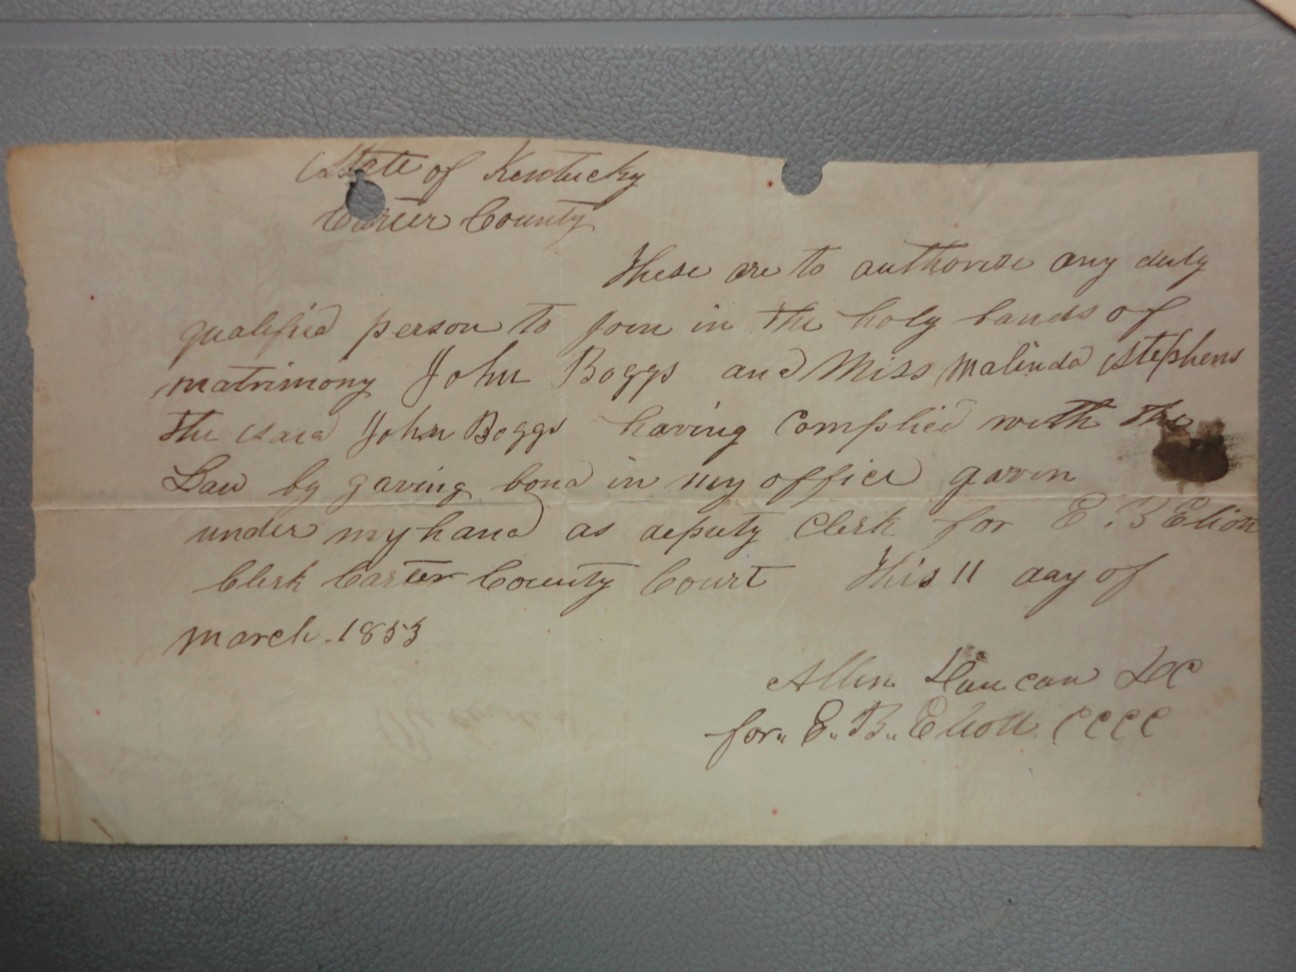 State of Kentucky
Carter County
These are to authorise any duly
qualified person to join in the holy bands of
matrimony John Boggs and Miss Malinda Stephens
the said John Boggs having complied with the
Law by gaving bond in my office gavin
under my hand as deputy Clerk for E. B Eliott
Clerk Carter County Court This 11 day of
March. 1853
Allen Duncan DC
for,, E.. B.. Eliott CCCC